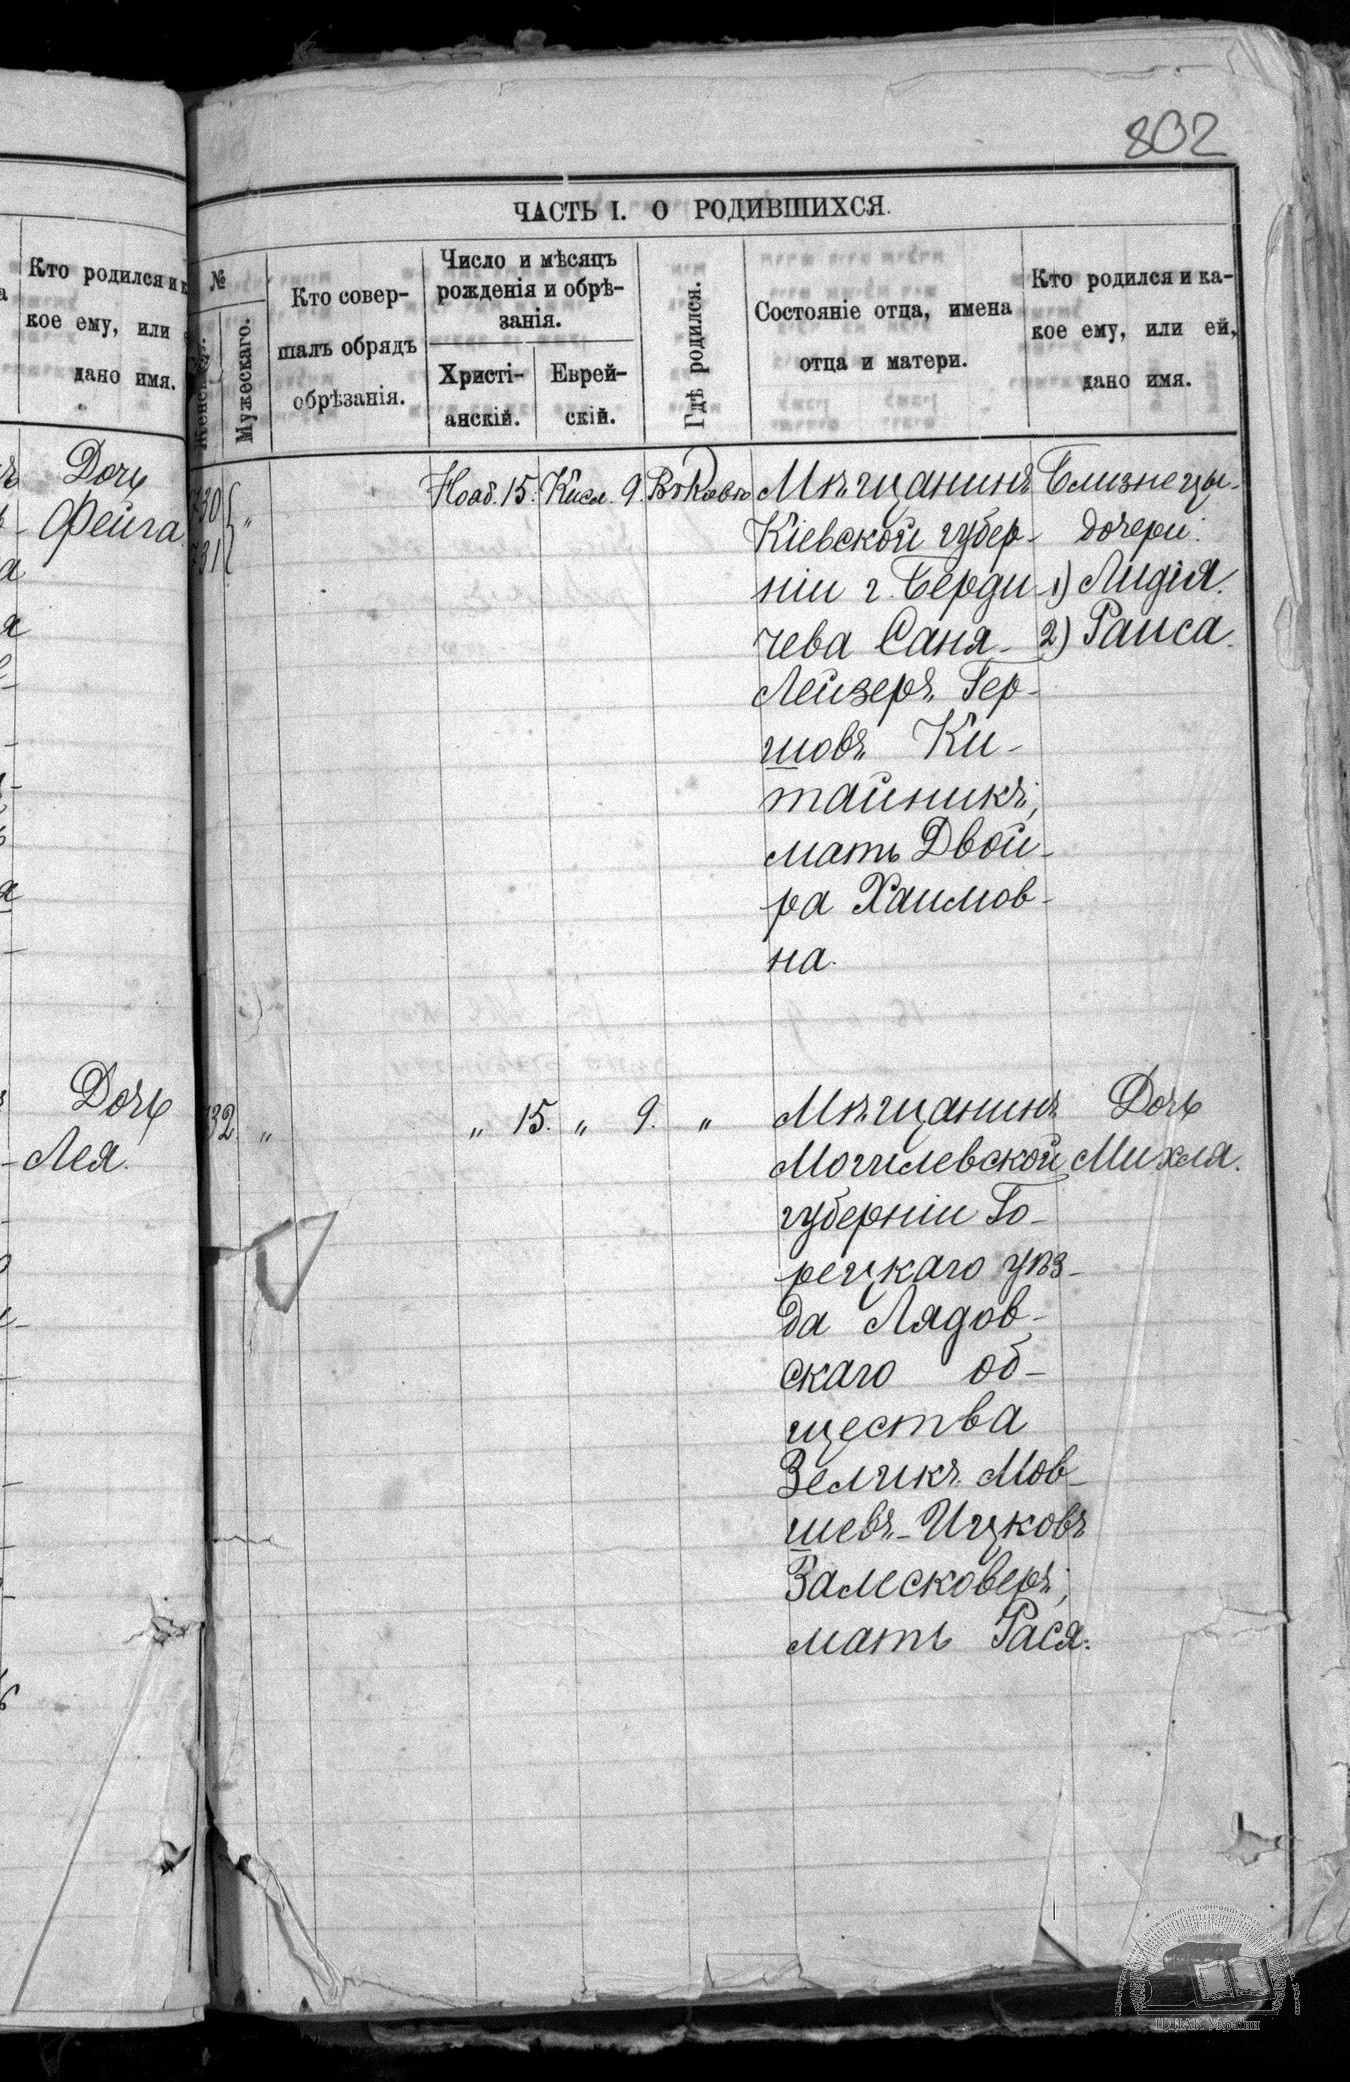 802
ЧАСТЬ I. О РОДИВШИХСЯ.
Кто родился и к
кое ему, или
дано имя.
№
Женскаго.
Мужескаго.
Кто совер-
шалъ обрядъ
обрѣзанія.
Число и мѣсяцъ
рожденія и обрѣ-
занія.
Христі-
анскій.
Еврей-
скій.
Гдѣ родился.
Состояніе отца, имена
отца и матери.
Кто родился и ка-
кое ему, или ей,
дано имя.
Дочь
Фейга.
Дочь
Лея.
730
731
"
Нояб. 15. Кисл. 9. Въ Кіевѣ
Мѣщанинъ
Кіевской губер-
ніи г. Берди
чева Саня-
Лейзеръ Гер-
шовъ Ки-
тайникъ,
мать Двой-
ра Хаимов-
на.
Близнецы-
дочери:
1) Лидія.
2) Раиса.
732. " " 15. " 9. "
Мѣщанинъ
Могилевской
губерніи Го-
рецкаго уѣз-
да Лядов-
скаго об-
щества
Зеликъ Мов-
шевъ-Ицковъ
Залесковеръ,
мать Рася.
Дочь
Михля.
ЦДІАК України